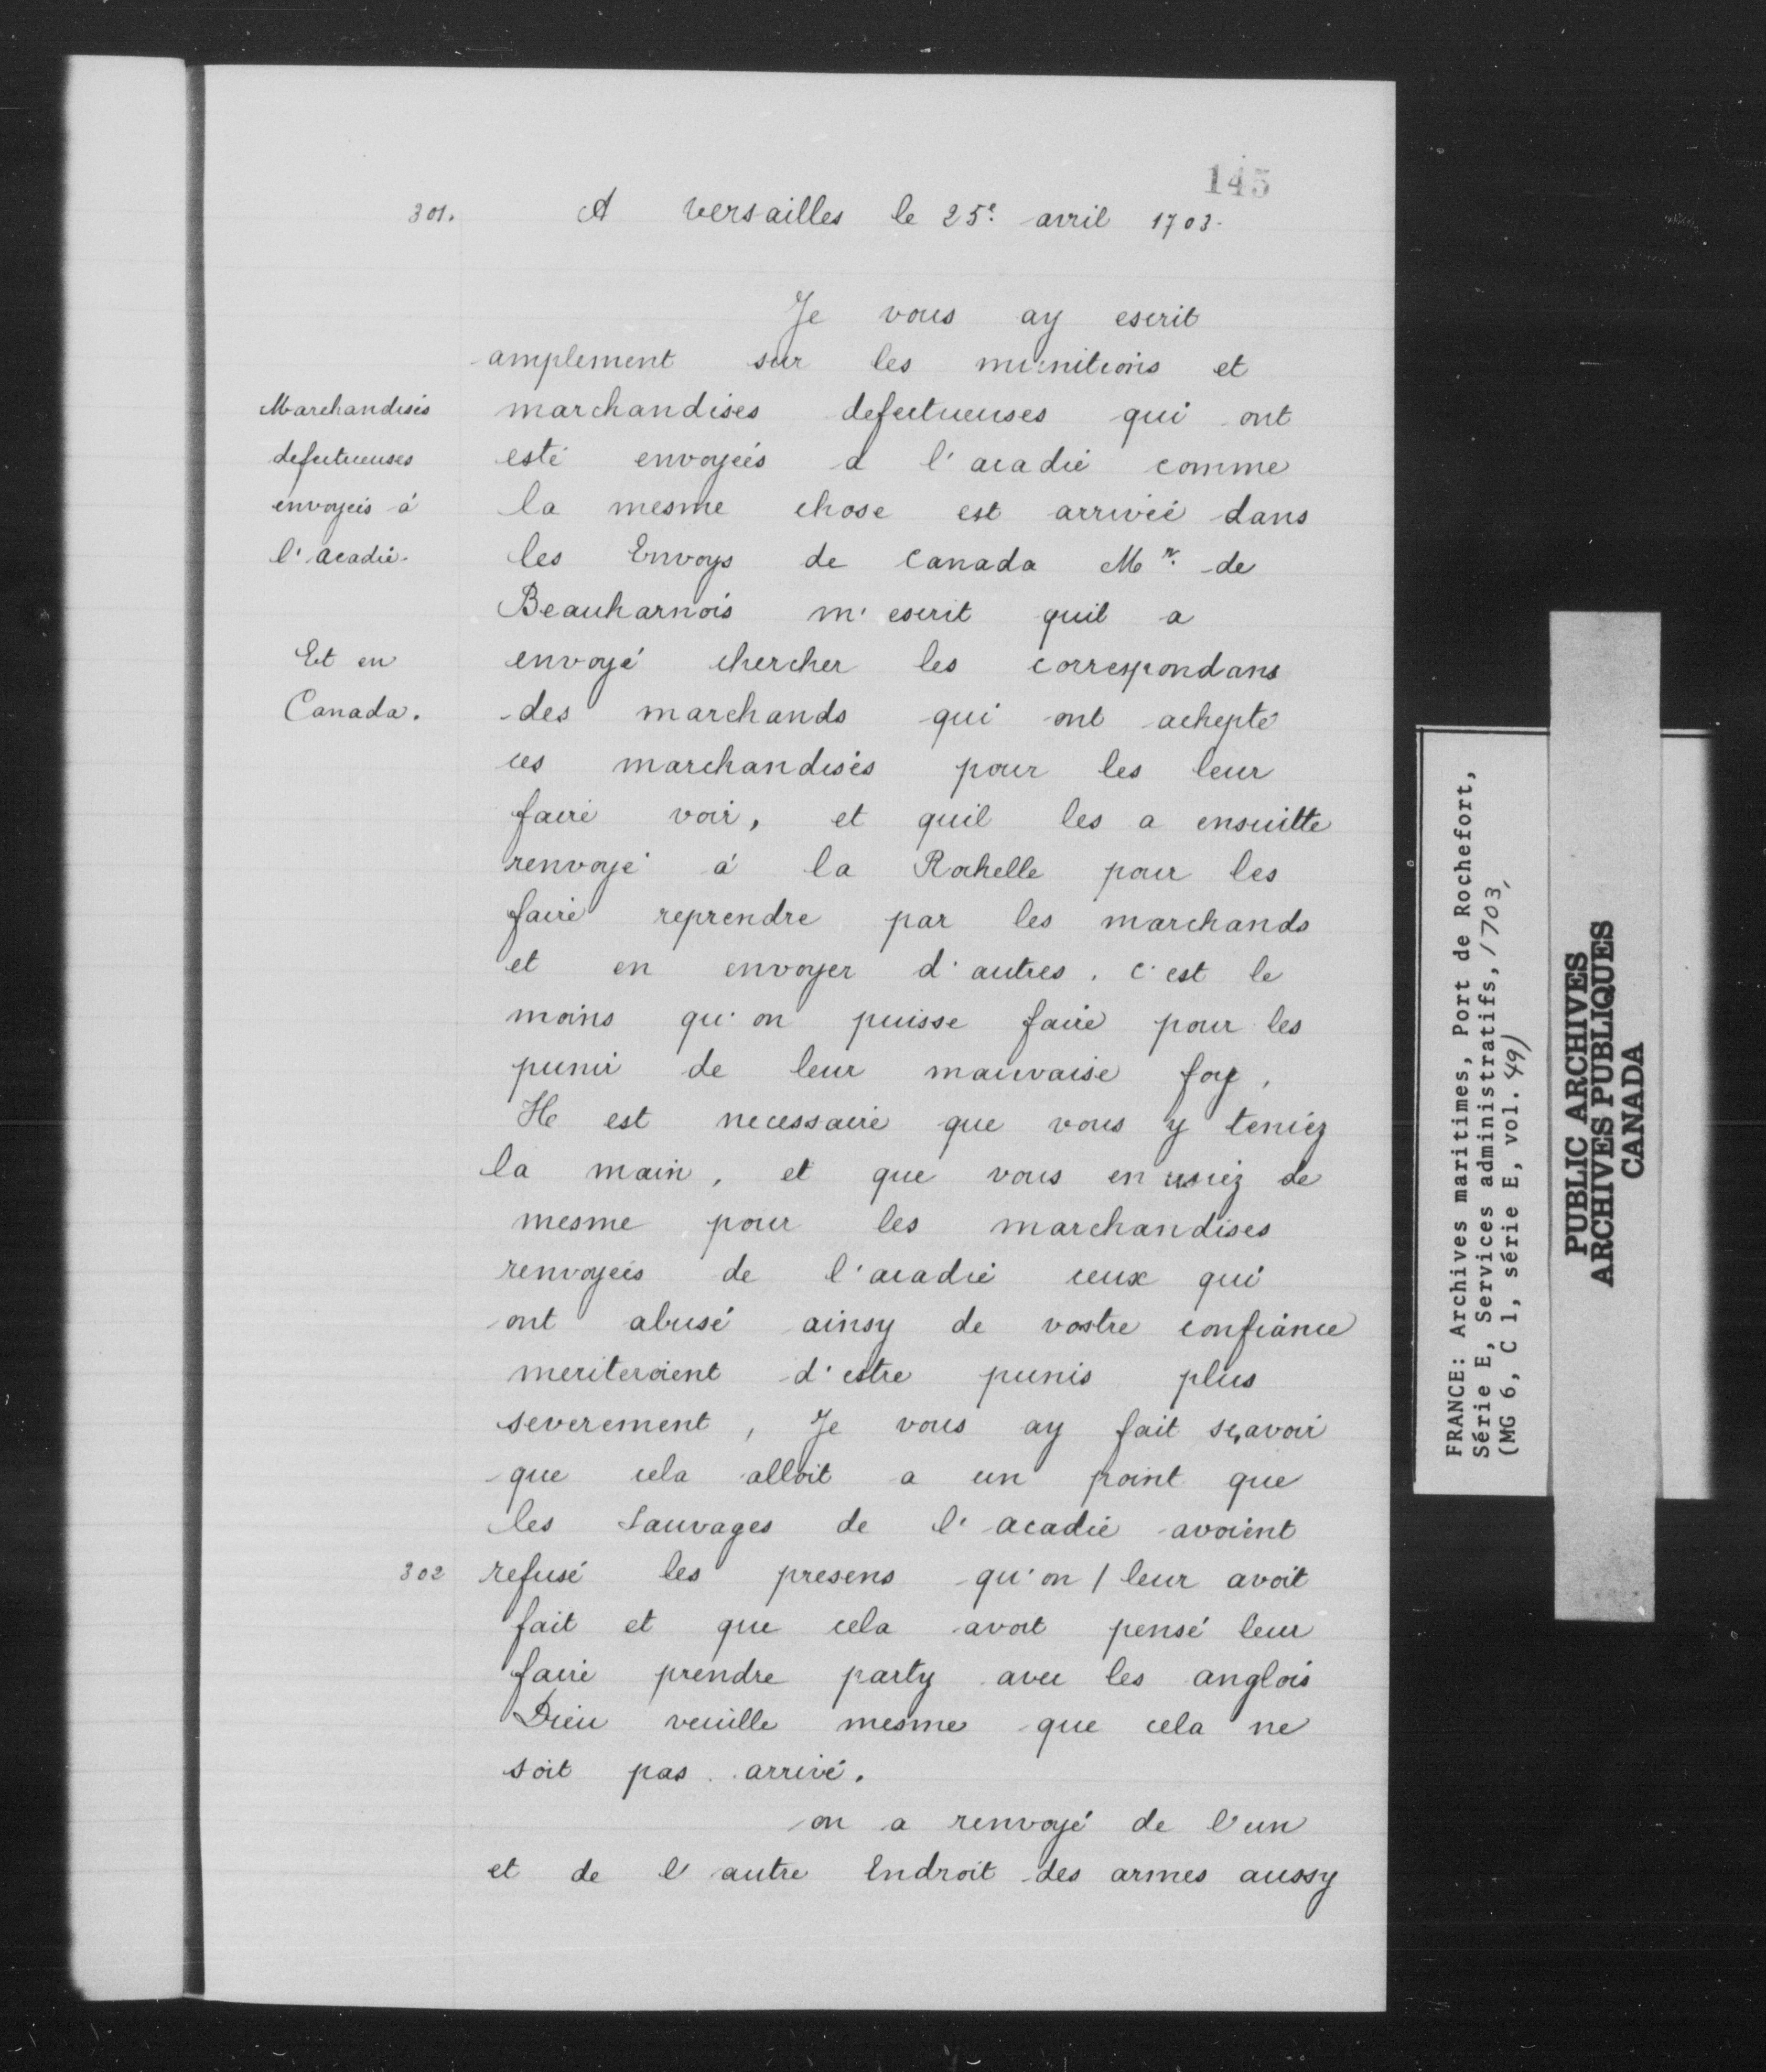 145
301. A Versailles le 25e. avril 1703.
Je vous ay escrit
amplement sur les munitions et
Marchandises marchandises defectueuses qui ont
defectueuses esté envoyées a l'acadie comme
envoyées à la mesme chose est arrivée dans
l'acadie. les Envoys de Canada Mr. de
Beauharnois m'escrit quil a
Et en envoyé chercher les correspondans
Canada. des marchands qui ont achepté
ces marchandises pour les leur
faire voir, et quil les a ensuitte
renvoyé à la Rochelle pour les
faire reprendre par les marchands
et en envoyer d'autres. c'est le
moins qu'on puisse faire pour les
punir de leur mauvaise foy.
Il est necessaire que vous y teniez
la main, et que vous en usiez de
mesme pour les marchandises
renvoyées de l'acadie ceux qui
ont abusé ainsy de vostre confiance
meriteroient d'estre punis plus
severement, Je vous ay fait sçavoir
que cela alloit a un point que
les Sauvages de l'acadie avoient
302 refusé les presens qu'on / leur avoit
fait et que cela avoit pensé leur
faire prendre party avec les anglois
Dieu veuille mesme que cela ne
soit pas arrivé.
on a renvoyé de l'un
et de l'autre Endroit des armes aussy
FRANCE: Archives maritimes, Port de Rochefort,
Série E, Services administratifs, 1703,
(MG 6, C 1, série E, vol. 49)
PUBLIC ARCHIVES
ARCHIVES PUBLIQUES
CANADA